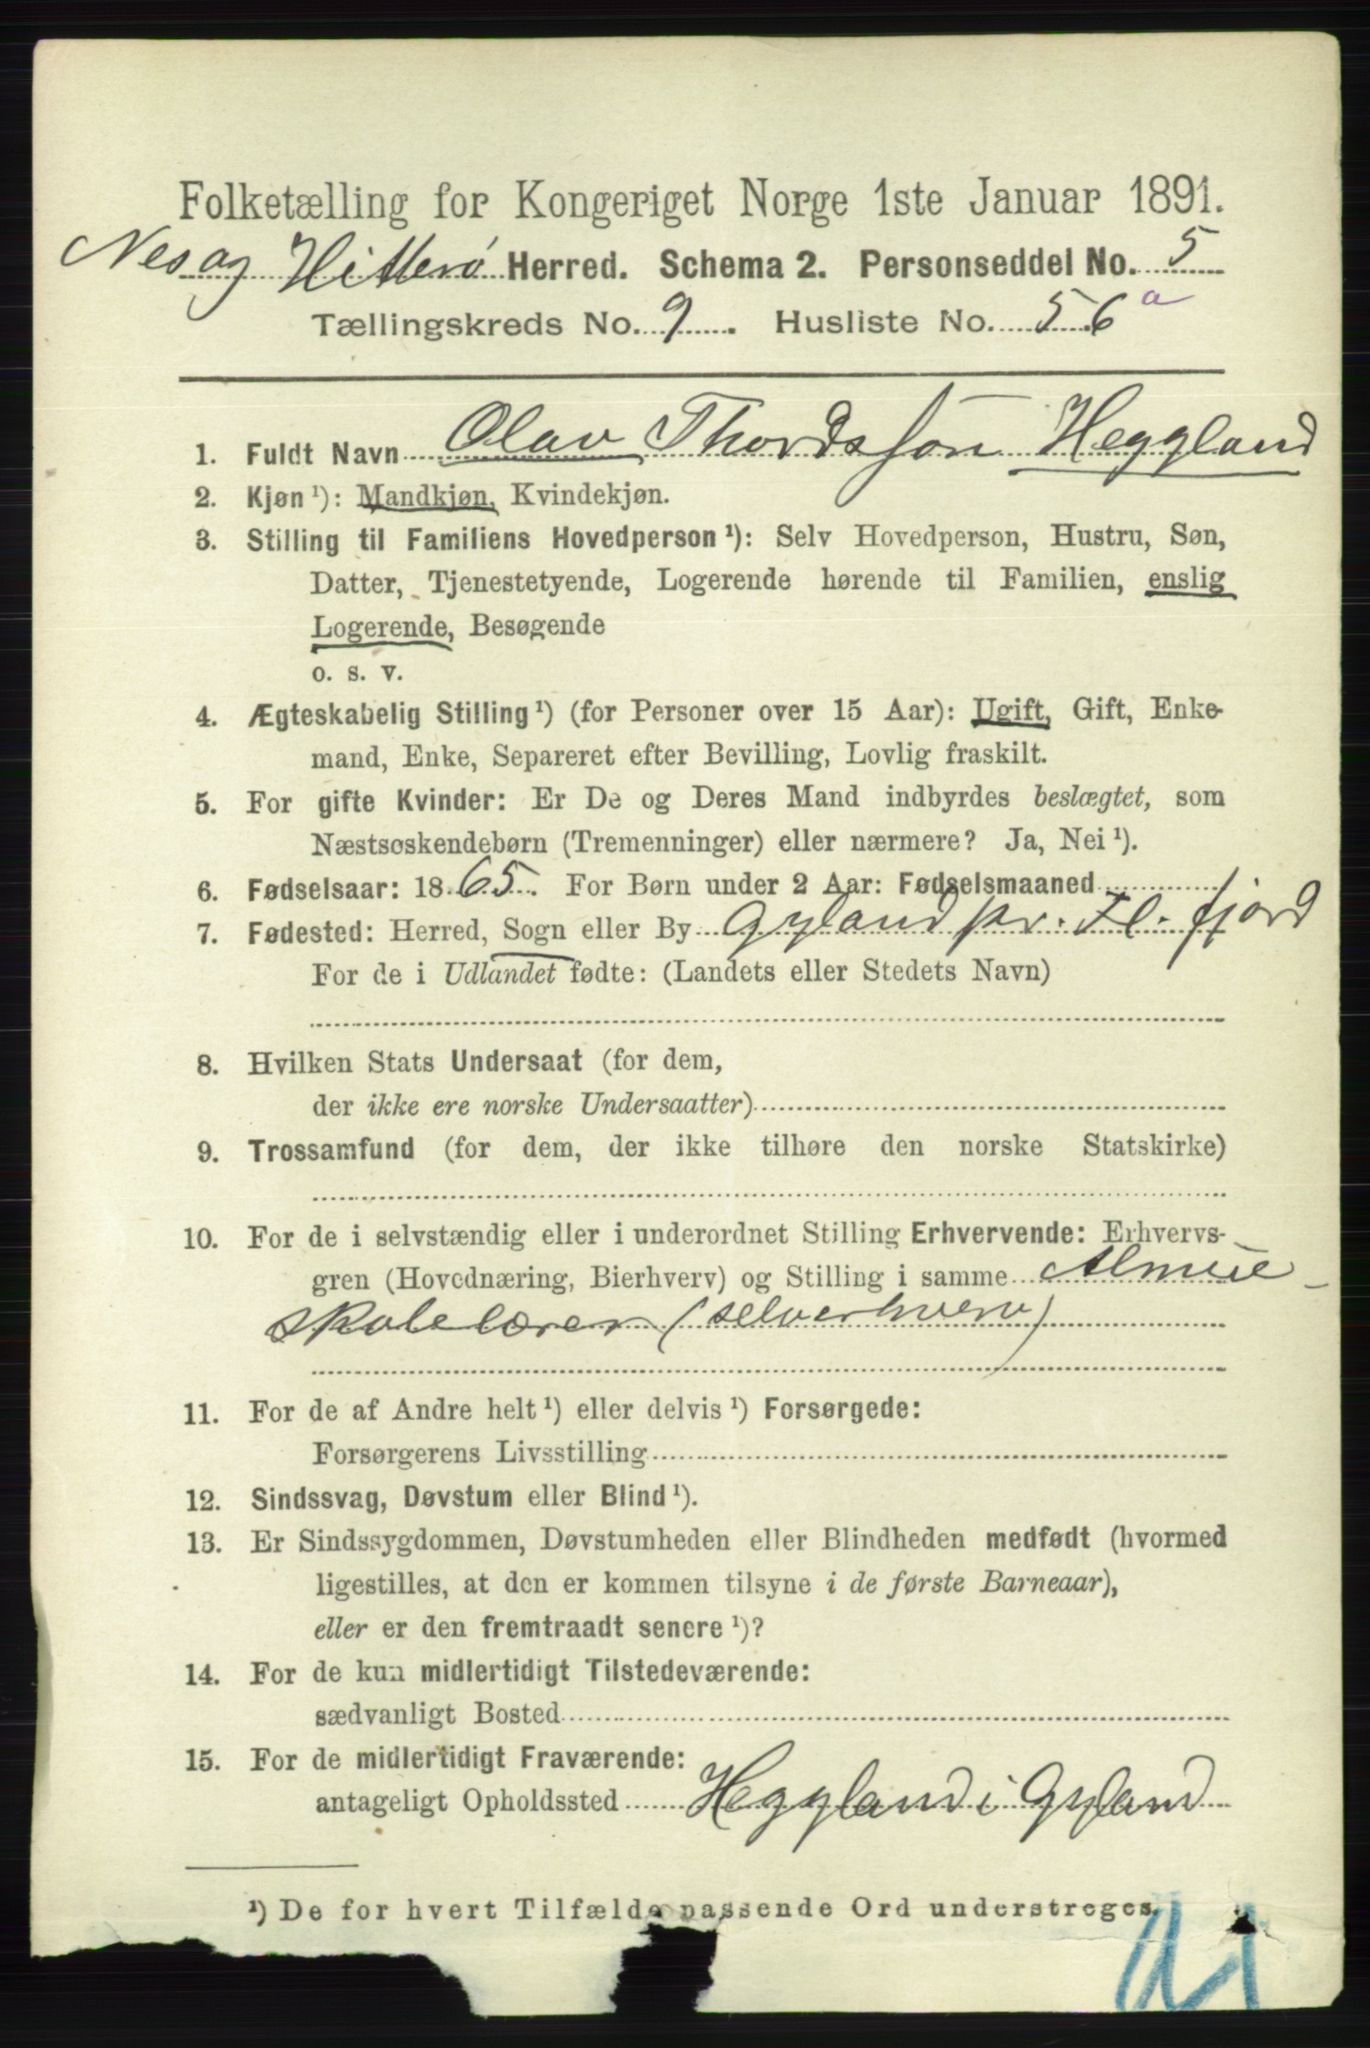 Folketælling for Kongeriget Norge 1ste Januar 1891.
Nes og Hitterø Herred. Schema 2. Personseddel No. 5
Tællingskreds No. 9. Husliste No. 56 a
1. Fuldt Navn Olav Thordsson Heggland
2. Kjøn ¹): Mandkjøn, Kvindekjøn.
3. Stilling til Familiens Hovedperson ¹): Selv Hovedperson, Hustru, Søn,
Datter, Tjenestetyende, Logerende hørende til Familien, enslig
Logerende, Besøgende
o. s. v.
4. Ægteskabelig Stilling ¹) (for Personer over 15 Aar): Ugift, Gift, Enke-
mand, Enke, Separeret efter Bevilling, Lovlig fraskilt.
5. For gifte Kvinder: Er De og Deres Mand indbyrdes beslægtet, som
Næstsøskendebørn (Tremenninger) eller nærmere? Ja, Nei ¹).
6. Fødselsaar: 1865. For Børn under 2 Aar: Fødselsmaaned
7. Fødested: Herred, Sogn eller By Gyland pr. Fl. fjord
For de i Udlandet fødte: (Landets eller Stedets Navn)
8. Hvilken Stats Undersaat (for dem,
der ikke ere norske Undersaatter)
9. Trossamfund (for dem, der ikke tilhøre den norske Statskirke)
10. For de i selvstændig eller i underordnet Stilling Erhvervende: Erhvervs-
gren (Hovednæring, Bierhverv) og Stilling i samme Almue-
skolelærer (selverhverv)
11. For de af Andre helt ¹) eller delvis ¹) Forsørgede:
Forsørgerens Livsstilling
12. Sindssvag, Døvstum eller Blind ¹).
13. Er Sindssygdommen, Døvstumheden eller Blindheden medfødt (hvormed
ligestilles, at den er kommen tilsyne i de første Barneaar),
eller er den fremtraadt senere ¹)?
14. For de kun midlertidigt Tilstedeværende:
sædvanligt Bosted
15. For de midlertidigt Fraværende:
antageligt Opholdssted Heggland i Gyland
¹) De for hvert Tilfælde passende Ord understreges.